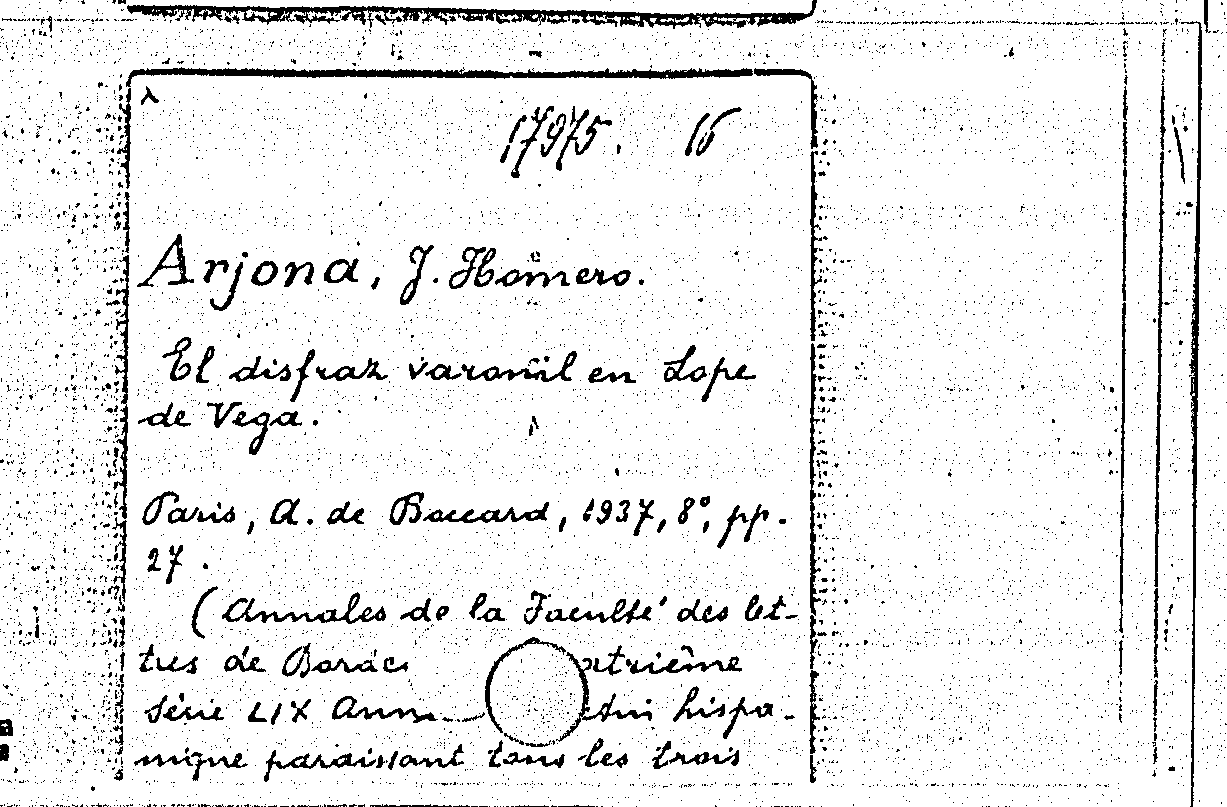 17975. 16
Arjona, J. Homero.
El disfraz varonil en Lope
de Vega.
Paris, A. de Boccard, 1937, 8°, pp.
27.
(Annales de la Faculté des let-
tres de
série LIX hispa-
nique paraissant tous les trois